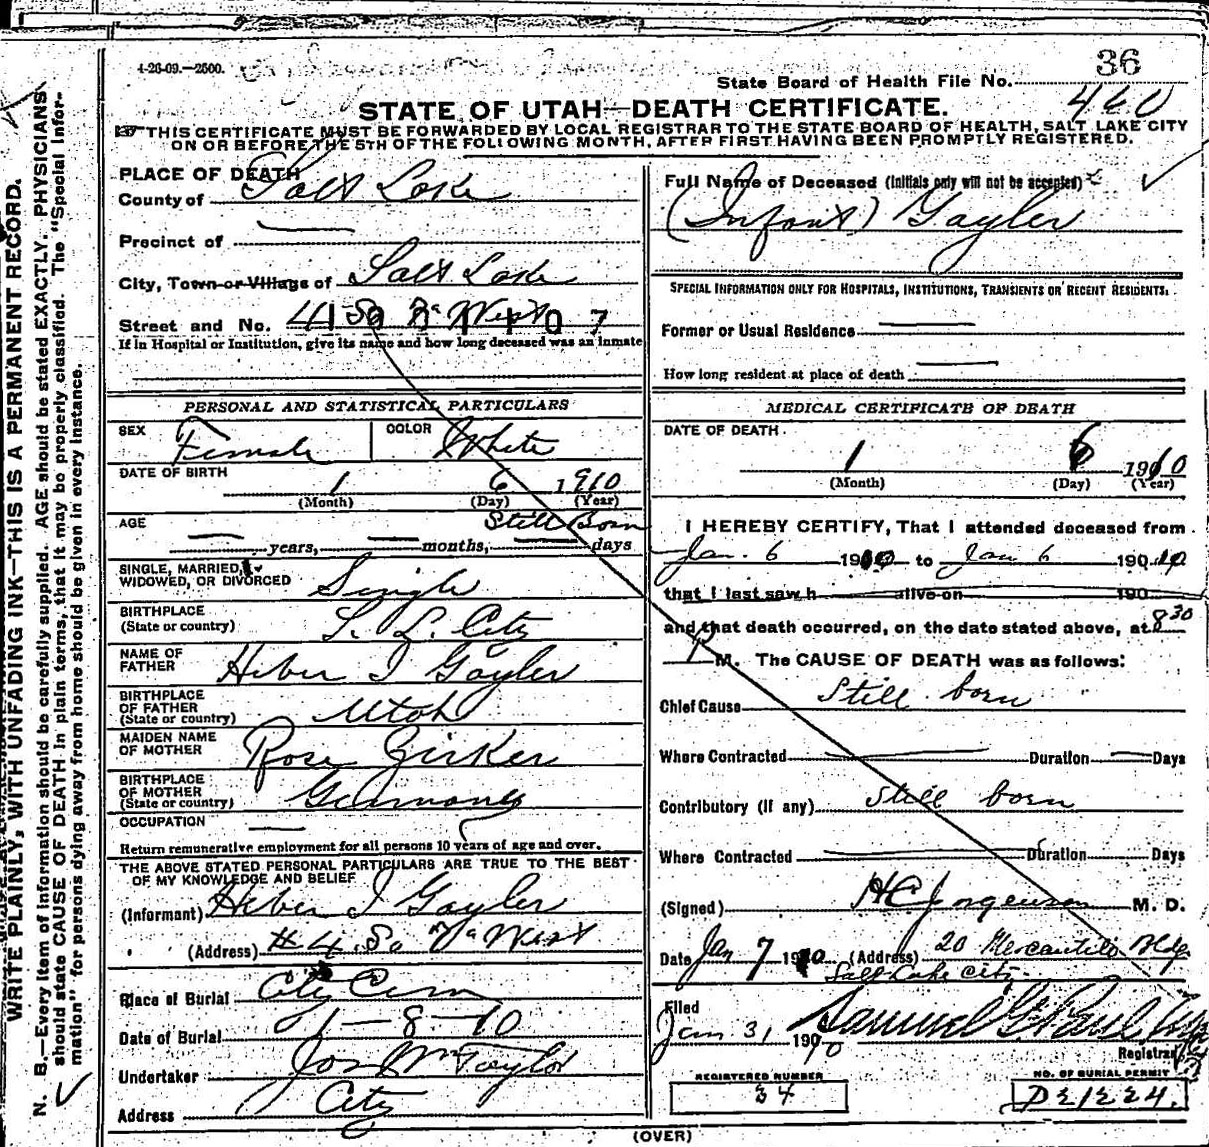 4-26-09.—2500.
36
State Board of Health File No.
460
STATE OF UTAH—DEATH CERTIFICATE.
THIS CERTIFICATE MUST BE FORWARDED BY LOCAL REGISTRAR TO THE STATE BOARD OF HEALTH, SALT LAKE CITY
ON OR BEFORE THE 5TH OF THE FOLLOWING MONTH, AFTER FIRST HAVING BEEN PROMPTLY REGISTERED.
PLACE OF DEATH
County of Salt Lake
Precinct of —
City, Town or Village of Salt Lake
Street and No. 4 So West
If in Hospital or Institution, give its name and how long deceased was an inmate
PERSONAL AND STATISTICAL PARTICULARS
SEX Female COLOR White
DATE OF BIRTH
1 6 1910
(Month) (Day) (Year)
AGE Still Born
— years, — months, — days
SINGLE, MARRIED,
WIDOWED, OR DIVORCED Single
BIRTHPLACE
(State or country) S. L. City
NAME OF
FATHER Heber J Gayler
BIRTHPLACE
OF FATHER
(State or country) Utah
MAIDEN NAME
OF MOTHER Rose Zirker
BIRTHPLACE
OF MOTHER
(State or country) Germany
OCCUPATION —
Return remunerative employment for all persons 10 years of age and over.
THE ABOVE STATED PERSONAL PARTICULARS ARE TRUE TO THE BEST
OF MY KNOWLEDGE AND BELIEF
(Informant) Heber J Gayler
(Address) # 4 So West
Place of Burial City Cem
Date of Burial 1-8-10
Undertaker Jos Wm Taylor
Address City
Full Name of Deceased (Initials only will not be accepted)
(Infant) Gayler
SPECIAL INFORMATION ONLY FOR HOSPITALS, INSTITUTIONS, TRANSIENTS OR RECENT RESIDENTS.
Former or Usual Residence —
How long resident at place of death —
MEDICAL CERTIFICATE OF DEATH
DATE OF DEATH
1 6 1910
(Month) (Day) (Year)
I HEREBY CERTIFY, That I attended deceased from
Jan. 6 1910 to Jan 6 1910
that I last saw h alive on 190
and that death occurred, on the date stated above, at 8 30
M. The CAUSE OF DEATH was as follows:
Chief Cause Still born
Where Contracted — Duration — Days
Contributory (if any) Still born
Where Contracted — Duration Days
(Signed) HC Jorgensen M. D.
Date Jan 7 1910 (Address) 20 Mercantile Bldg
Salt Lake City
Filed
Jan 31 1910 Samuel G. Paul
Registrar
REGISTERED NUMBER
34
NO. OF BURIAL PERMIT
D21224.
(OVER)
WRITE PLAINLY, WITH UNFADING INK—THIS IS A PERMANENT RECORD.
N. B.—Every item of information should be carefully supplied. AGE should be stated EXACTLY. PHYSICIANS
should state CAUSE OF DEATH in plain terms, that it may be properly classified. The "Special Infor-
mation" for persons dying away from home should be given in every instance.